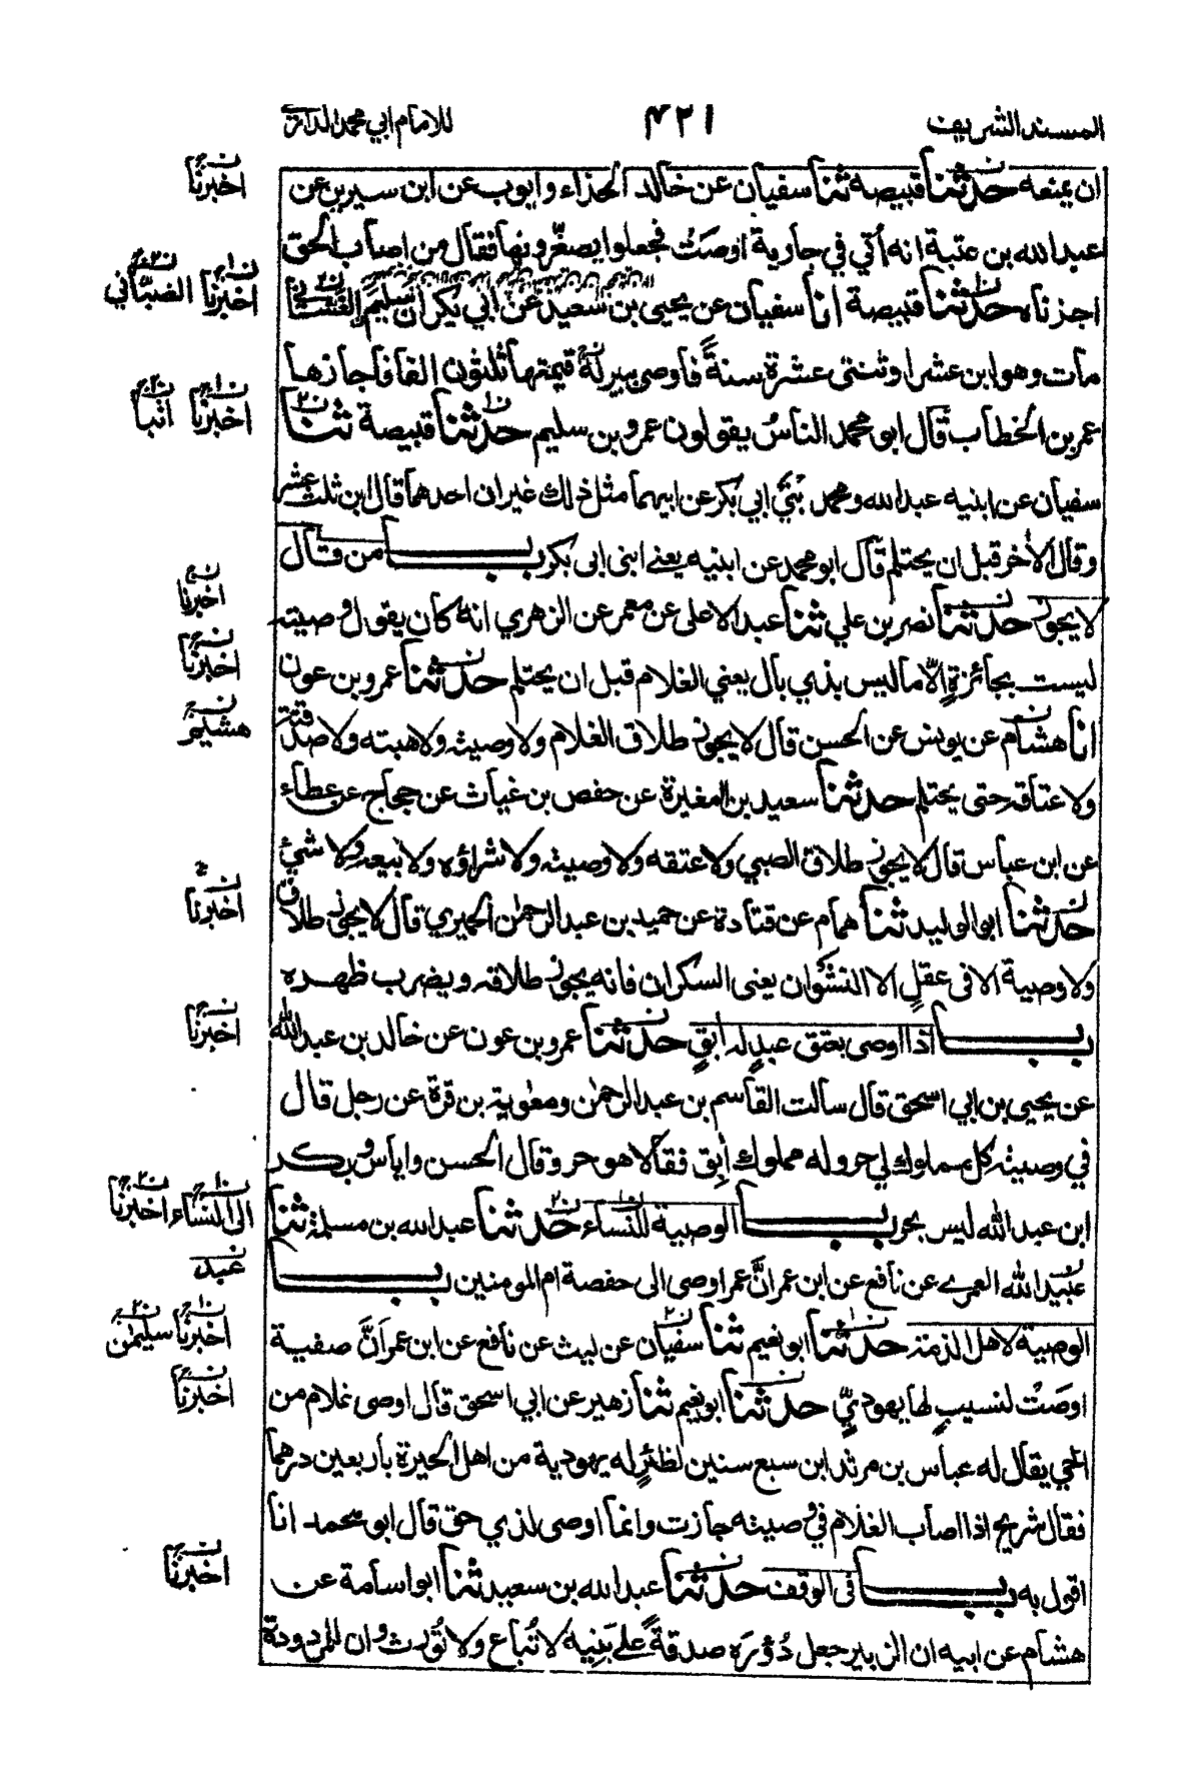 المسند الشريف ٤٢١ للامام ابي محمد الدارمي
ان يمنعه حدثنا قبيصة ثنا سفيان عن خالد الحذاء وايوب عن ابن سيرين عن
اخبرنا
عبد الله بن عتبة انه أتي في جارية اوصَتْ فجعلوا يصغّرونها فقال من اصاب الحق
اجزناه حدثنا قبيصة انا سفيان عن يحيى بن سعيد عن ابي بكر ان سليم الغسّاني
اخبرنا الضبّاني
مات وهو ابن عشر او ثنتي عشرة سنةً فأوصى ببير له قيمتها ثلثون الفا فأجازها
عمر بن الخطاب قال ابو محمد الناسُ يقولون عمرو بن سليم حدثنا قبيصة ثنا
اخبرنا انبا
سفيان عن ابنيه عبد الله ومحمد بْنَيْ ابي بكر عن ابيهما مثل ذلك غير ان احدهما قال ابن ثلث عشر
وقال الأخر قبل ان يحتلم قال ابو محمد عن ابنيه يعني ابنى ابى بكر باب من قال
لا يجوز حدثنا نصر بن علي ثنا عبد الاعلى عن معمر عن الزهري انه كان يقول وصيته
اخبرنا
ليست بجائزةٍ الّا ما ليس بذي بال يعني الغلام قبل ان يحتلم حدثنا عمرو بن عون
اخبرنا
انا هشام عن يونس عن الحسن قال لا يجوز طلاق الغلام ولا وصيته ولا هبته ولا صدقته
هشيم
ولا عتاقه حتى يحتلم حدثنا سعيد بن المغيرة عن حفص بن غياث عن حجاج عن عطاء
عن ابن عباس قال لا يجوز طلاق الصبي ولا عتقه ولا وصيته ولا شراؤه ولا بيعه ولا شيئ
حدثنا ابو الوليد ثنا همام عن قتادة عن حميد بن عبد الرحمن الحميري قال لا يجوز طلاق
اخبرنا
ولا وصية الا في عقلٍ الا النشْوان يعنى السكران فانه يجوز طلاقه ويضرب ظهره
باب اذا اوصى بعتق عبدٍ له ابقٍ حدثنا عمرو بن عون عن خالد بن عبد الله
اخبرنا
عن يحيى بن ابي اسحق قال سالت القاسم بن عبد الرحمن ومعوية بن قرة عن رجل قال
في وصيته كل مملوك لي حر وله مملوك أبِق فقالا هو حر وقال الحسن واياس وبكر
ابن عبد الله ليس بحر باب الوصية للنساء حدثنا عبد الله بن مسلمة ثنا
الى النساء اخبرنا
عُبيد الله العمرے عن نافع عن ابن عمر انَّ عمر اوصى الى حفصة ام المومنين باب
عبد
الوصية لاهل الذمة حدثنا ابو نعيم ثنا سفيان عن ليث عن نافع عن ابن عمر انَّ صفية
اخبرنا سليمن
اوصَتْ لنسيبٍ لها يهوديٍّ حدثنا ابو نعيم ثنا زهير عن ابي اسحق قال اوصى غلام من
اخبرنا
الحي يقال له عباس بن مرثد ابن سبع سنين لظئرٍ له يهودية من اهل الحيرة بأربعين درهما
فقال شريح اذا اصاب الغلام في وصيته جازت وانما اوصى لذي حق قال ابو محمد انا
اقول به باب في الوقف حدثنا عبد الله بن سعيد ثنا ابو اسامة عن
اخبرنا
هشام عن ابيه ان الزبير جعل دُوْرَه صدقةً علے بَنِيه لا تُباع ولا تُورث وان للمردودة